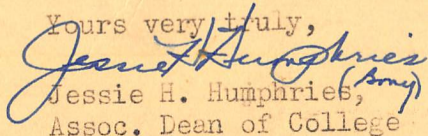 Yours very truly,
Jessie H. Humphries
(Bony)
Jessie H. Humphries,
Assoc. Dean of College